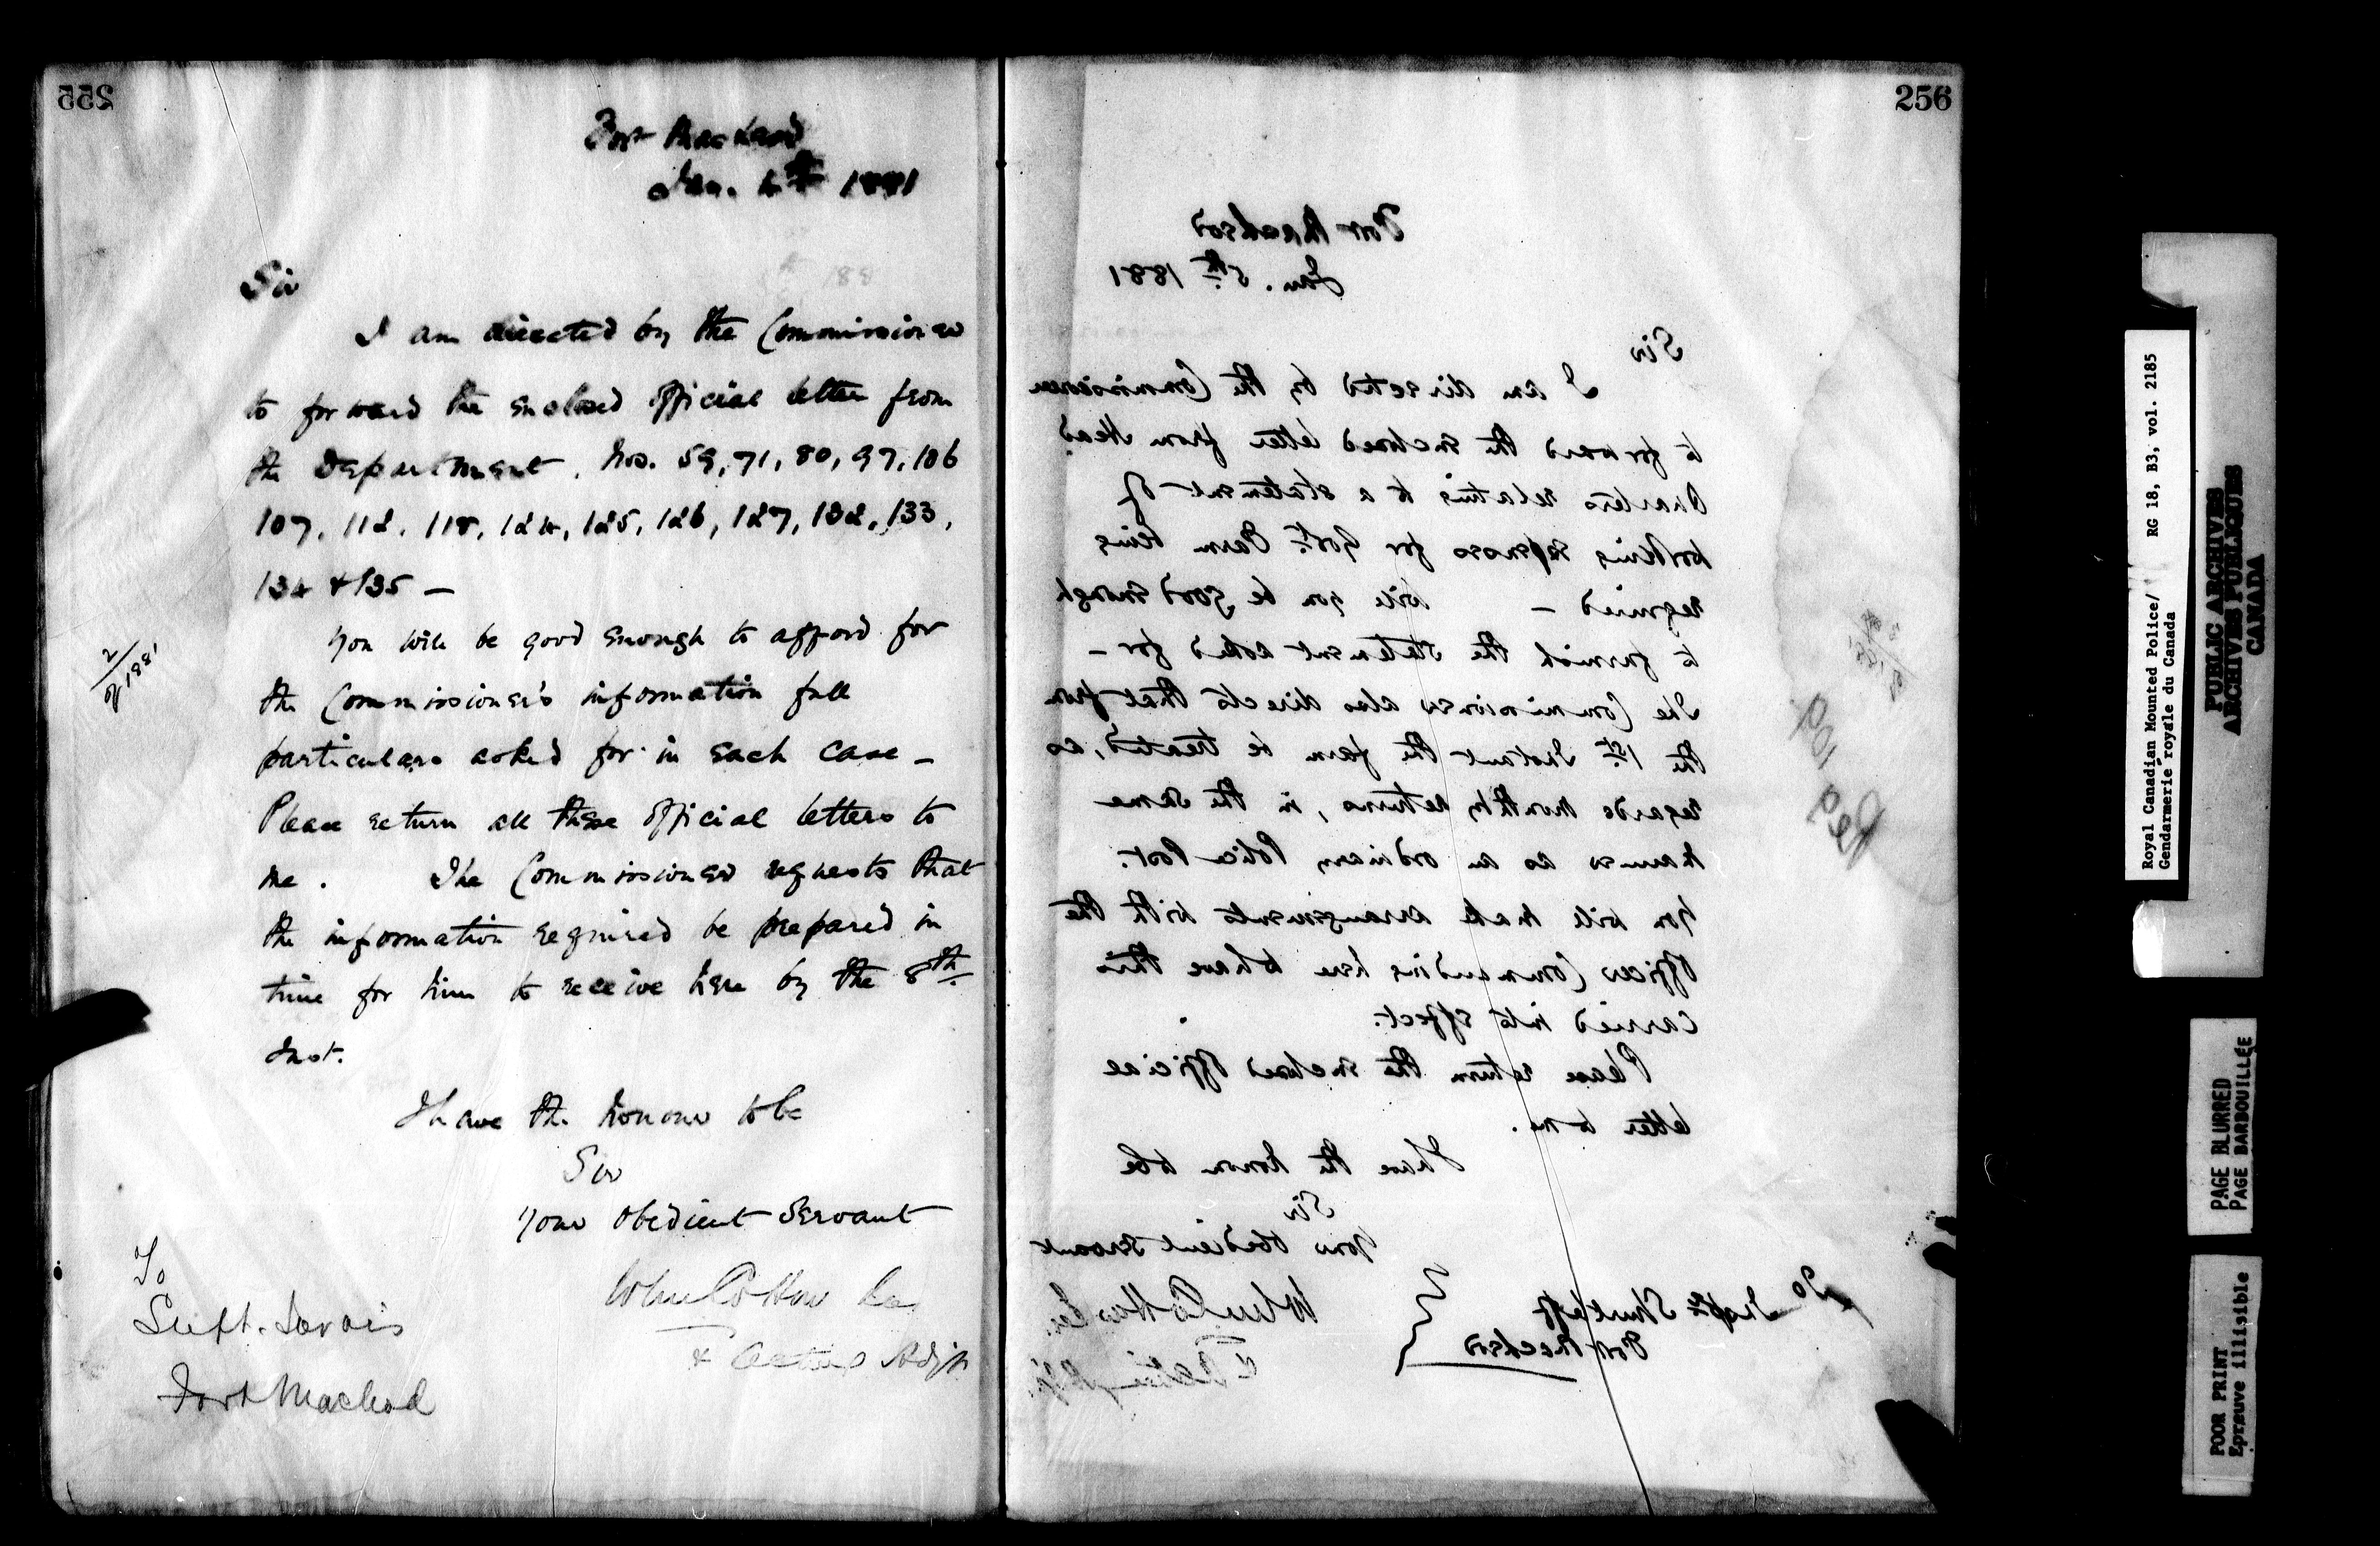 255
Fort Macleod
Jan. 4th 1881
Sir
I am directed by the Commissioner
to forward the enclosed official letter from
the Department. Nos. 59, 71, 80, 97, 106
107, 112, 118, 124, 125, 126, 127, 132, 133,
134 & 135 —
You will be good enough to afford for
the Commissioner's information full
particulars asked for in each case —
Please return all these official letters to
me. The Commissioner requests that
the information required be prepared in
time for him to receive here by the 8th
Inst.
I have the honour to be
Sir
Your obedient Servant
& Acting Adjt
To
Supt. Jarvis
Fort Macleod
2/2/1881
256
Fort Macleod
Jan. 5th 1881
Sir
I am directed by the Commissioner
to forward the enclosed letter from Head
Quarters relating to a statement of
working expenses for Govt. Farm being
required — Will you be good enough
to furnish the statement asked for —
The Commissioner also directs that from
the 1st Instant the farm be treated, as
regards monthly returns, in the same
manner as an ordinary Police Post.
You will make arrangements with the
Officer Commanding here to have this
carried into effect.
Please return the enclosed official
letter to me.
I have the honor to be
Sir
Your obedient servant
& Acting Adjt.
To
Inspr. Shurtliff
Fort Macleod
Royal Canadian Mounted Police/ RG 18, B3, vol. 2185
Gendarmerie royale du Canada
PUBLIC ARCHIVES
ARCHIVES PUBLIQUES
CANADA
PAGE BLURRED
PAGE BARBOUILLÉE
POOR PRINT
Epreuve illisible